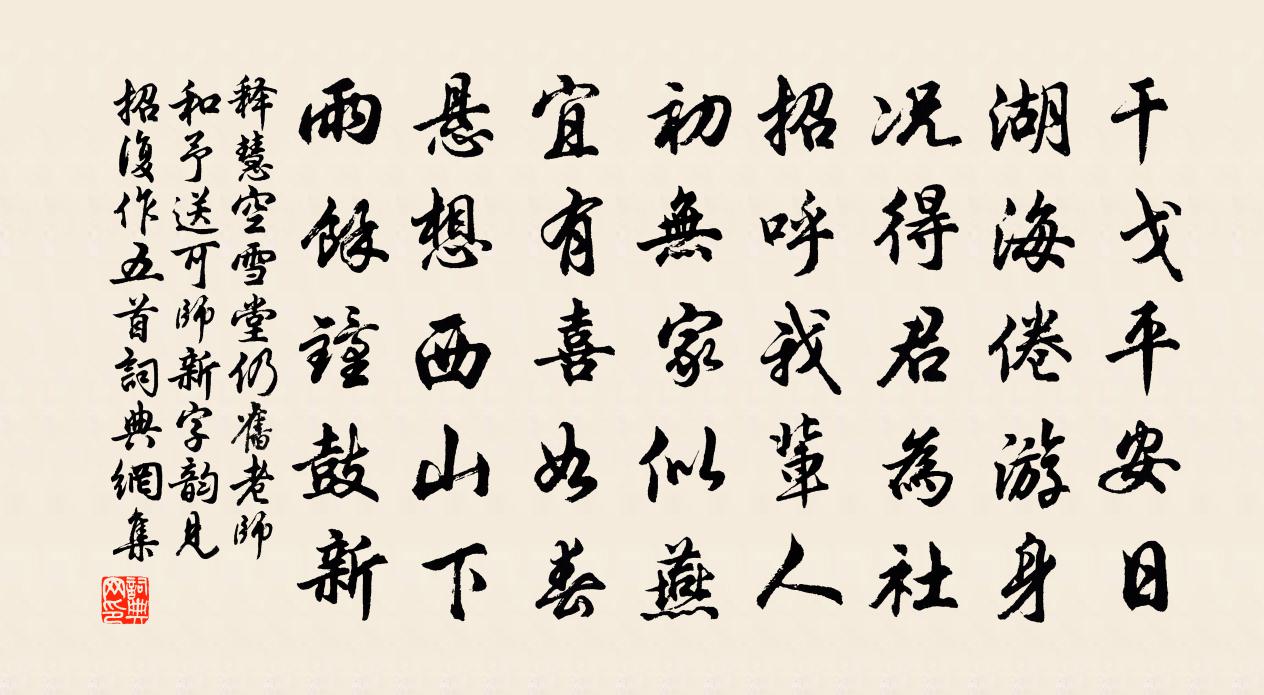 干戈平安日
湖海倦游身
况得君為社
招呼我輩人
初無家似燕
宜有喜如春
悬想西山下
雨餘鐘鼓新
释慧空雪堂仍舊老師
和予送可師新字韵見
招復作五首詞典網集
詞典網印